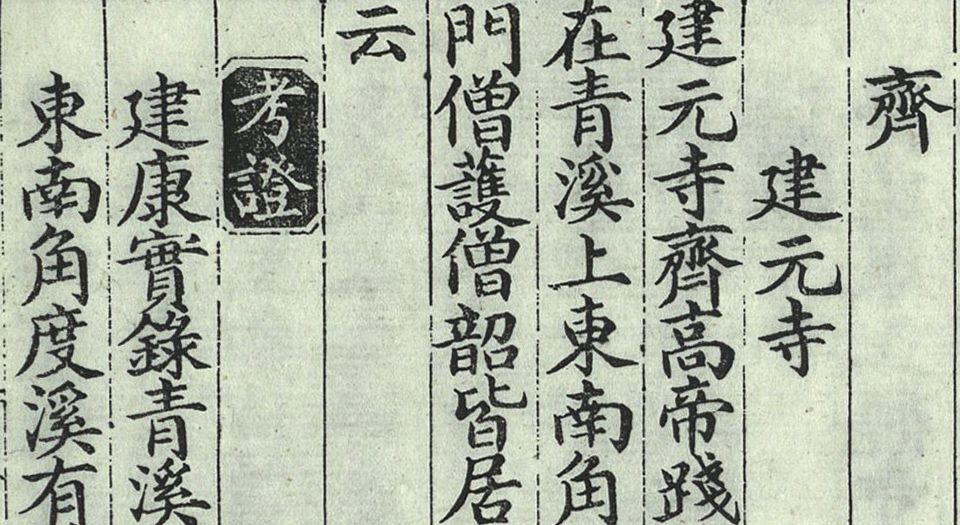 齊
建元寺
建元寺齊高帝踐
在青溪上東南角
門僧護僧韶皆居
云
考證
建康實錄青溪
東南角度溪有